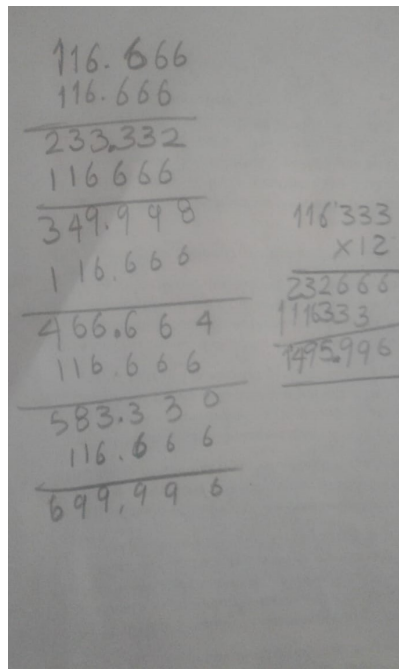 116.666
116.666
233.332
116666
349.998
116.666
466.664
116.666
583.330
116.666
699.996
116333
x12
232666
1116333
1495.996